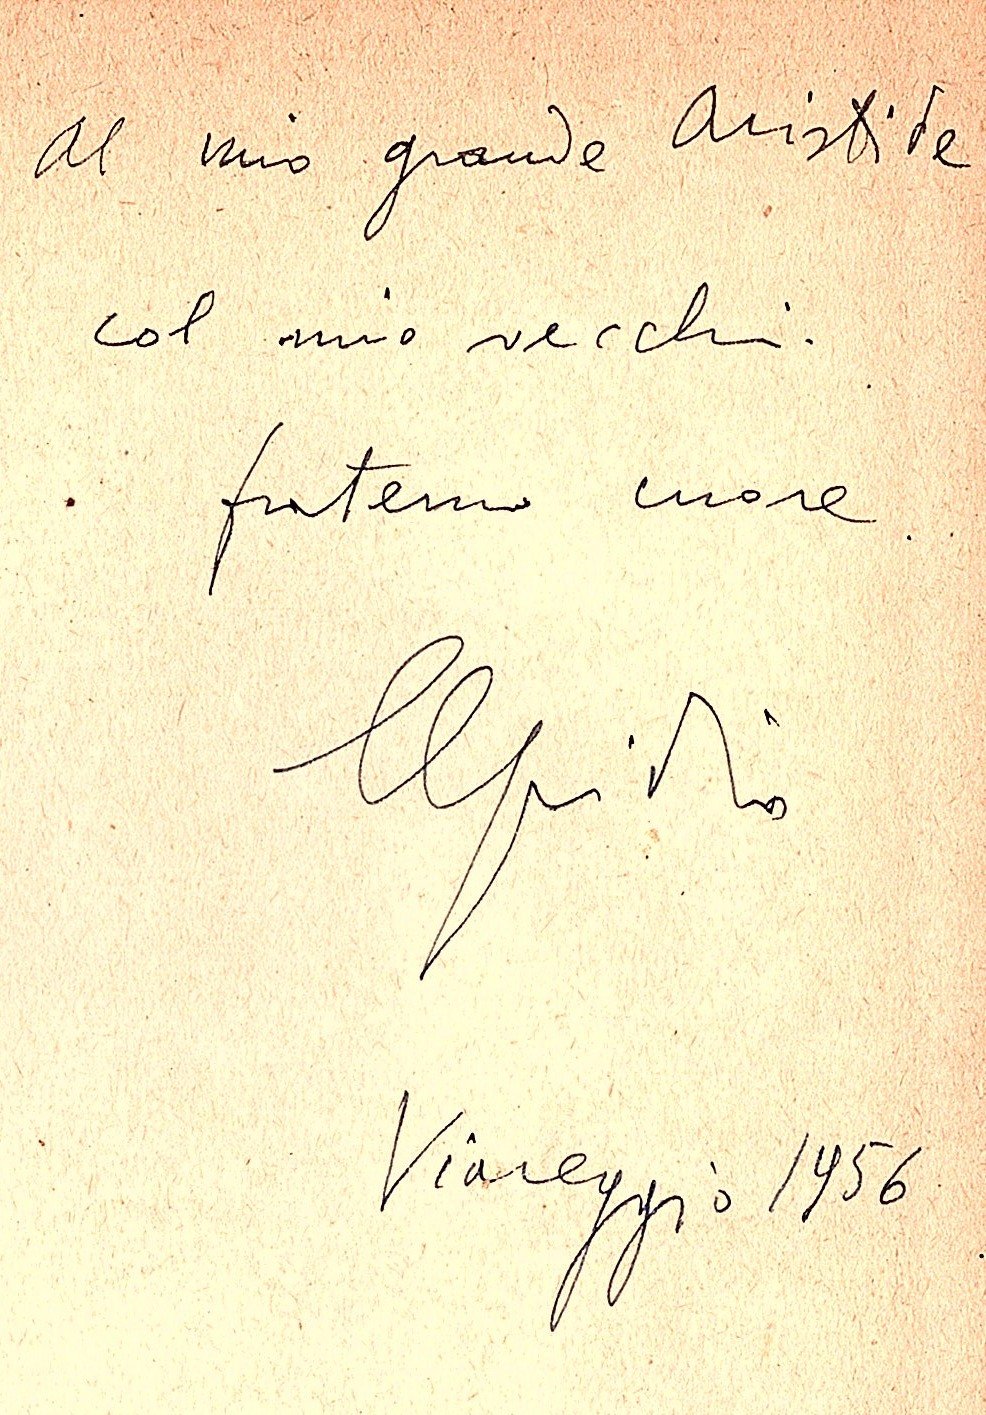 Al mio grande Aristide
col mio vecchio
fraterno cuore.
Elpidio
Viareggio 1956